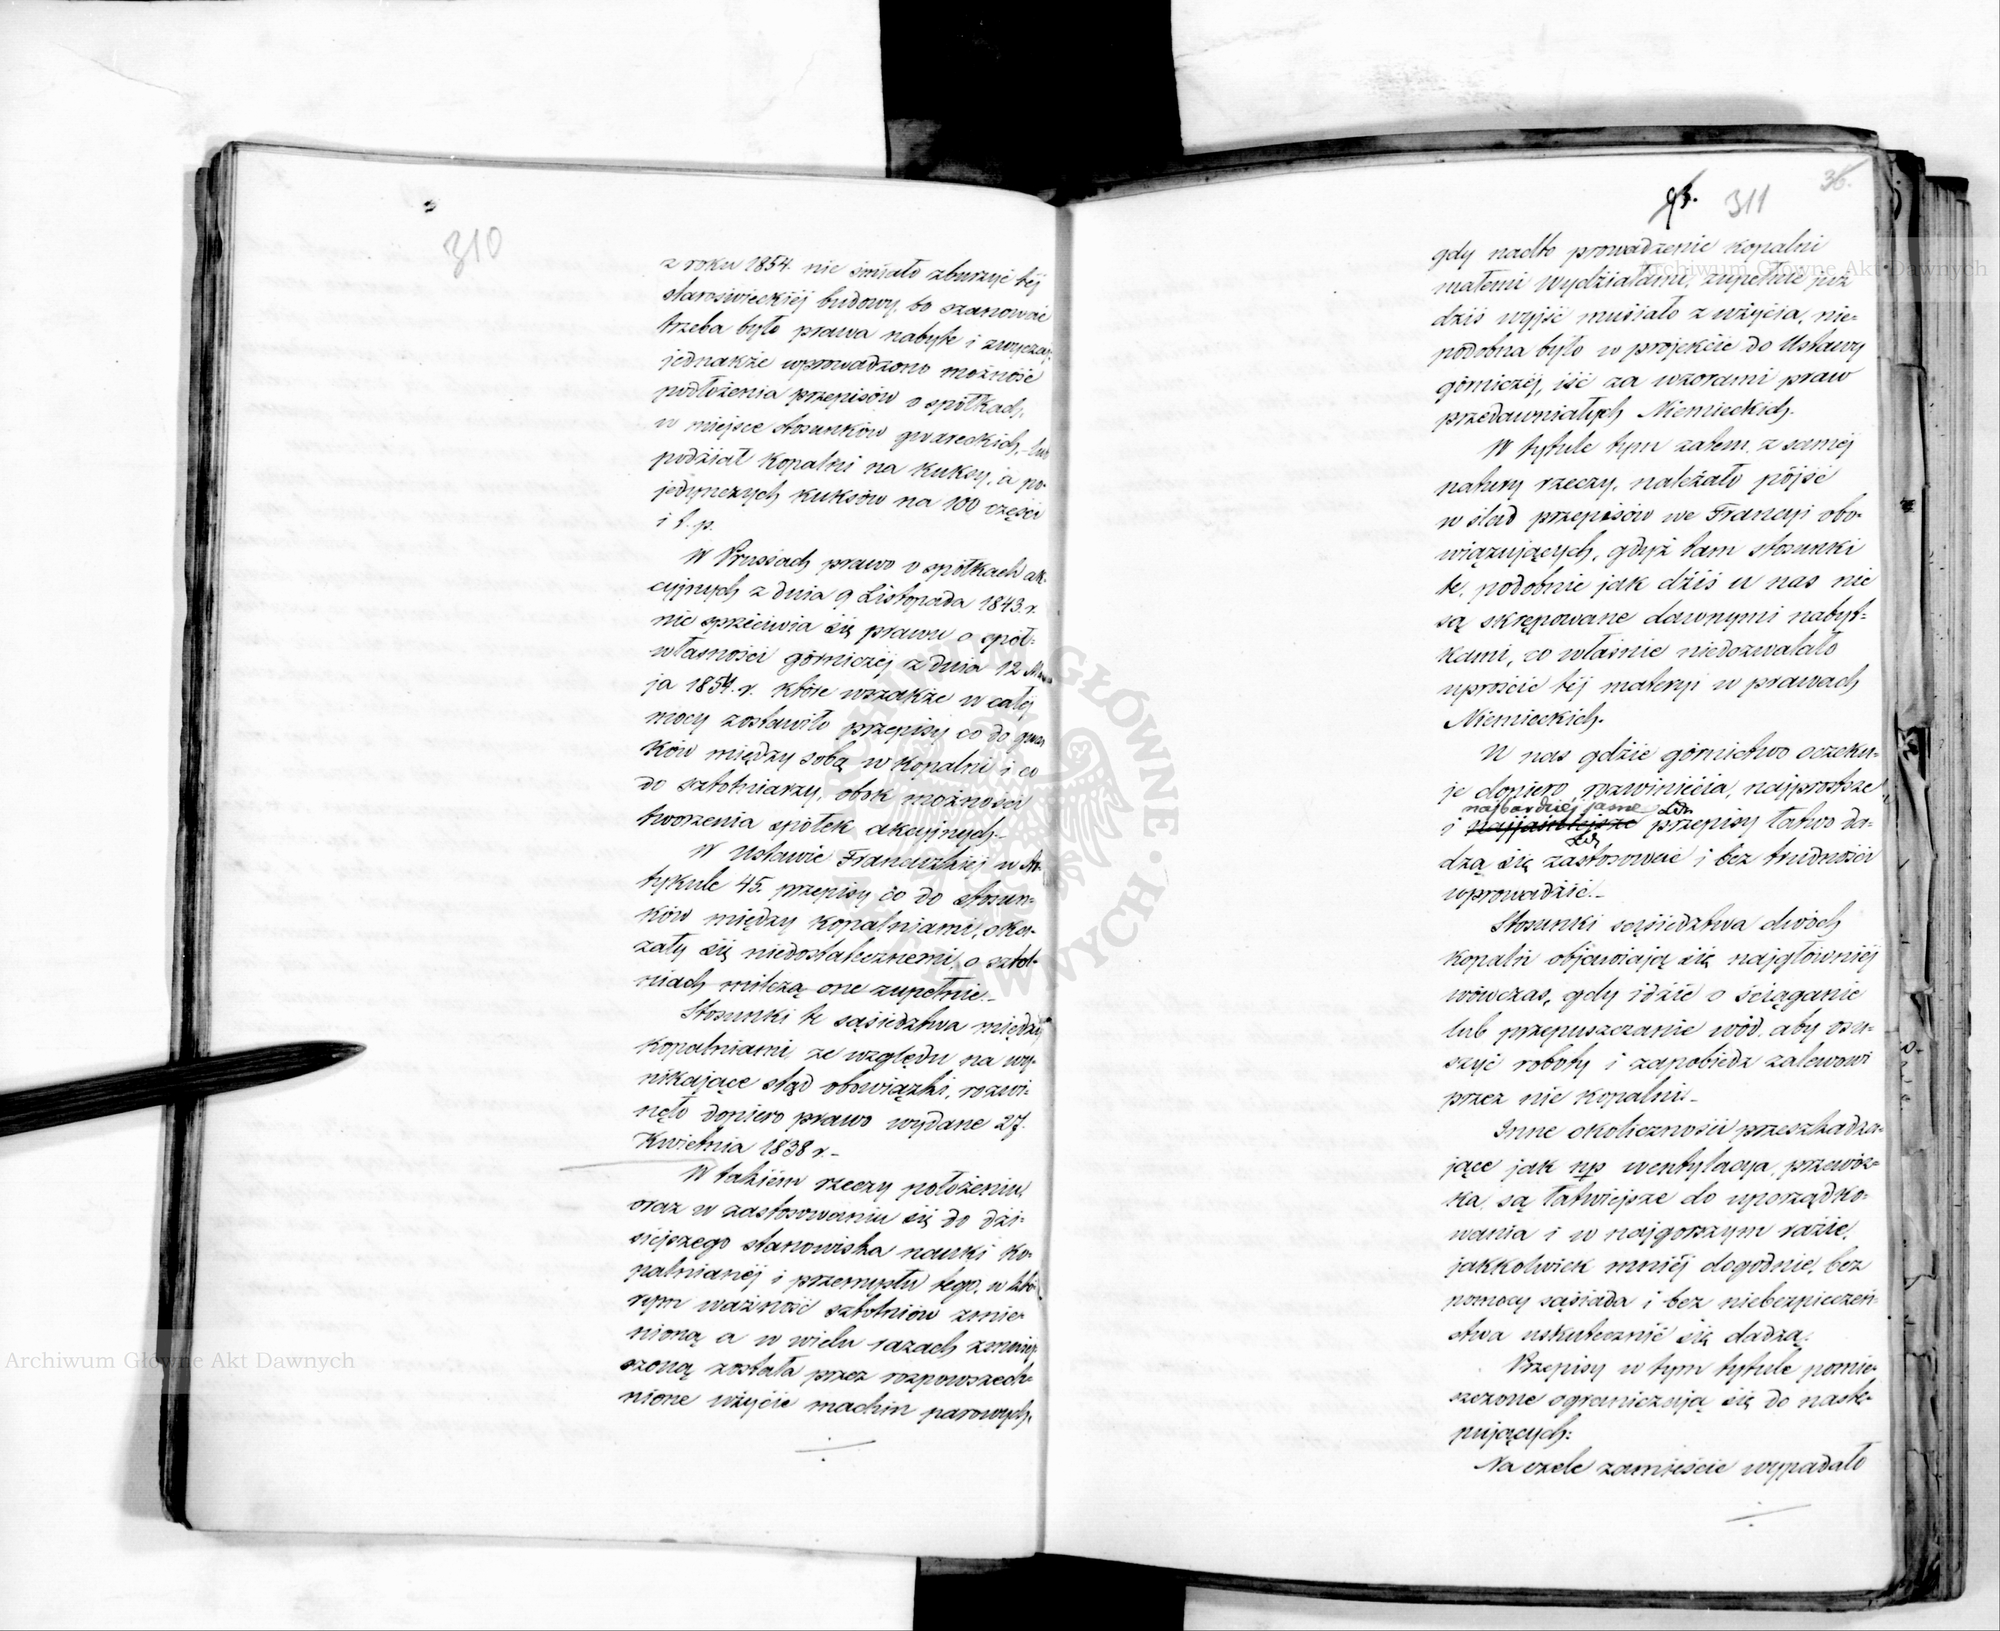 310
z roku 1854. nie śmiało zburzyć téj
staroświeckiéj budowy, bo szanować
trzeba było prawa nabyte i zwyczaj,
jednakże wprowadzono możność
podłożenia przepisów o spółkach,
w miejsce stosunków gwareckich, lub
podział Kopalni na Kuksy, a po-
jedynczych kuksów na 100 części
i t. p.
W Prussach prawo o spółkach ak-
cyjnych z dnia 9 Listopada 1843. r.
nie sprzeciwia się prawu o spół-
własności górniczéj z dnia 12 Ma
ja 1854. r. które wszakże w całéj
mocy zostawiło przepisy co do gwar
ków między sobą w Kopalni i co
do sztolniarzy, obok możności
tworzenia spółek akcyjnych.-
W Ustawie Francuzkiej w Ar
tykule 45. przepisy co do stosun-
ków między kopalniami, oka-
zały się niedostatecznemi, o sztol-
niach milczą one zupełnie.-
Stosunki te sąsiedztwa między
Kopalniami, ze względu na wy-
nikające stąd obowiązki, rozwi-
nęło dopiero prawo wydane 27.
Kwietnia 1838 r.-
W takiém rzeczy położeniu,
oraz w zastosowaniu się do dzi-
siejszego stanowiska nauki ko-
palnianéj i przemysłu tego, w któ-
rym ważność sztolniów zmie-
nioną a w wielu razach zmniej
szoną została przez rozpowszech-
nione użycie machin parowych,
36.
95. 311
gdy nadto prowadzenie kopalni
małemi Wydziałami, zupełnie już
dziś wyjść musiało z użycia, nie-
podobna było w projekcie do Ustawy
górniczéj, iść za wzorami praw
przedawniałych Niemieckich.
W tytule tym zatem, z saméj
natury rzeczy, należało pójść
w ślad przepisów we Francyi obo-
wiązujących, gdyż tam stosunki
te, podobnie jak dziś u nas nie
są skrępowane dawnymi nabyt-
kami, co właśnie niedozwalało
uprościć téj materyi w prawach
Niemieckich.
U nas gdzie górnictwo oczeku-
je dopiero rozwinięcia, najprostsze
najbardziej jasne
i najjaśniejsze przepisy łatwo da-
dzą się zastosować i bez trudności
wprowadzić.-
Stosunki sąsiedztwa dwóch
kopalń objawiają się najgłówniéj
wówczas, gdy idzie o ściąganie
lub przepuszczanie wód, aby osu-
szyć roboty i zapobiedz zalewowi
przez nie kopalni.-
Inne okoliczności przeszkadza-
jące jak np wentylacya, przewóz-
ka, są łatwiejsze do uporządko-
wania i w najgorszym razie,
jakkolwiek mniéj dogodnie, bez
pomocy sąsiada i bez niebezpieczeń-
stwa uskutecznić się dadzą.
Przepisy w tym tytule pomie-
szczone ograniczają się do nastę-
pujących:
Na czele zamieścić wypadało
Archiwum Główne Akt Dawnych
Archiwum Główne Akt Dawnych